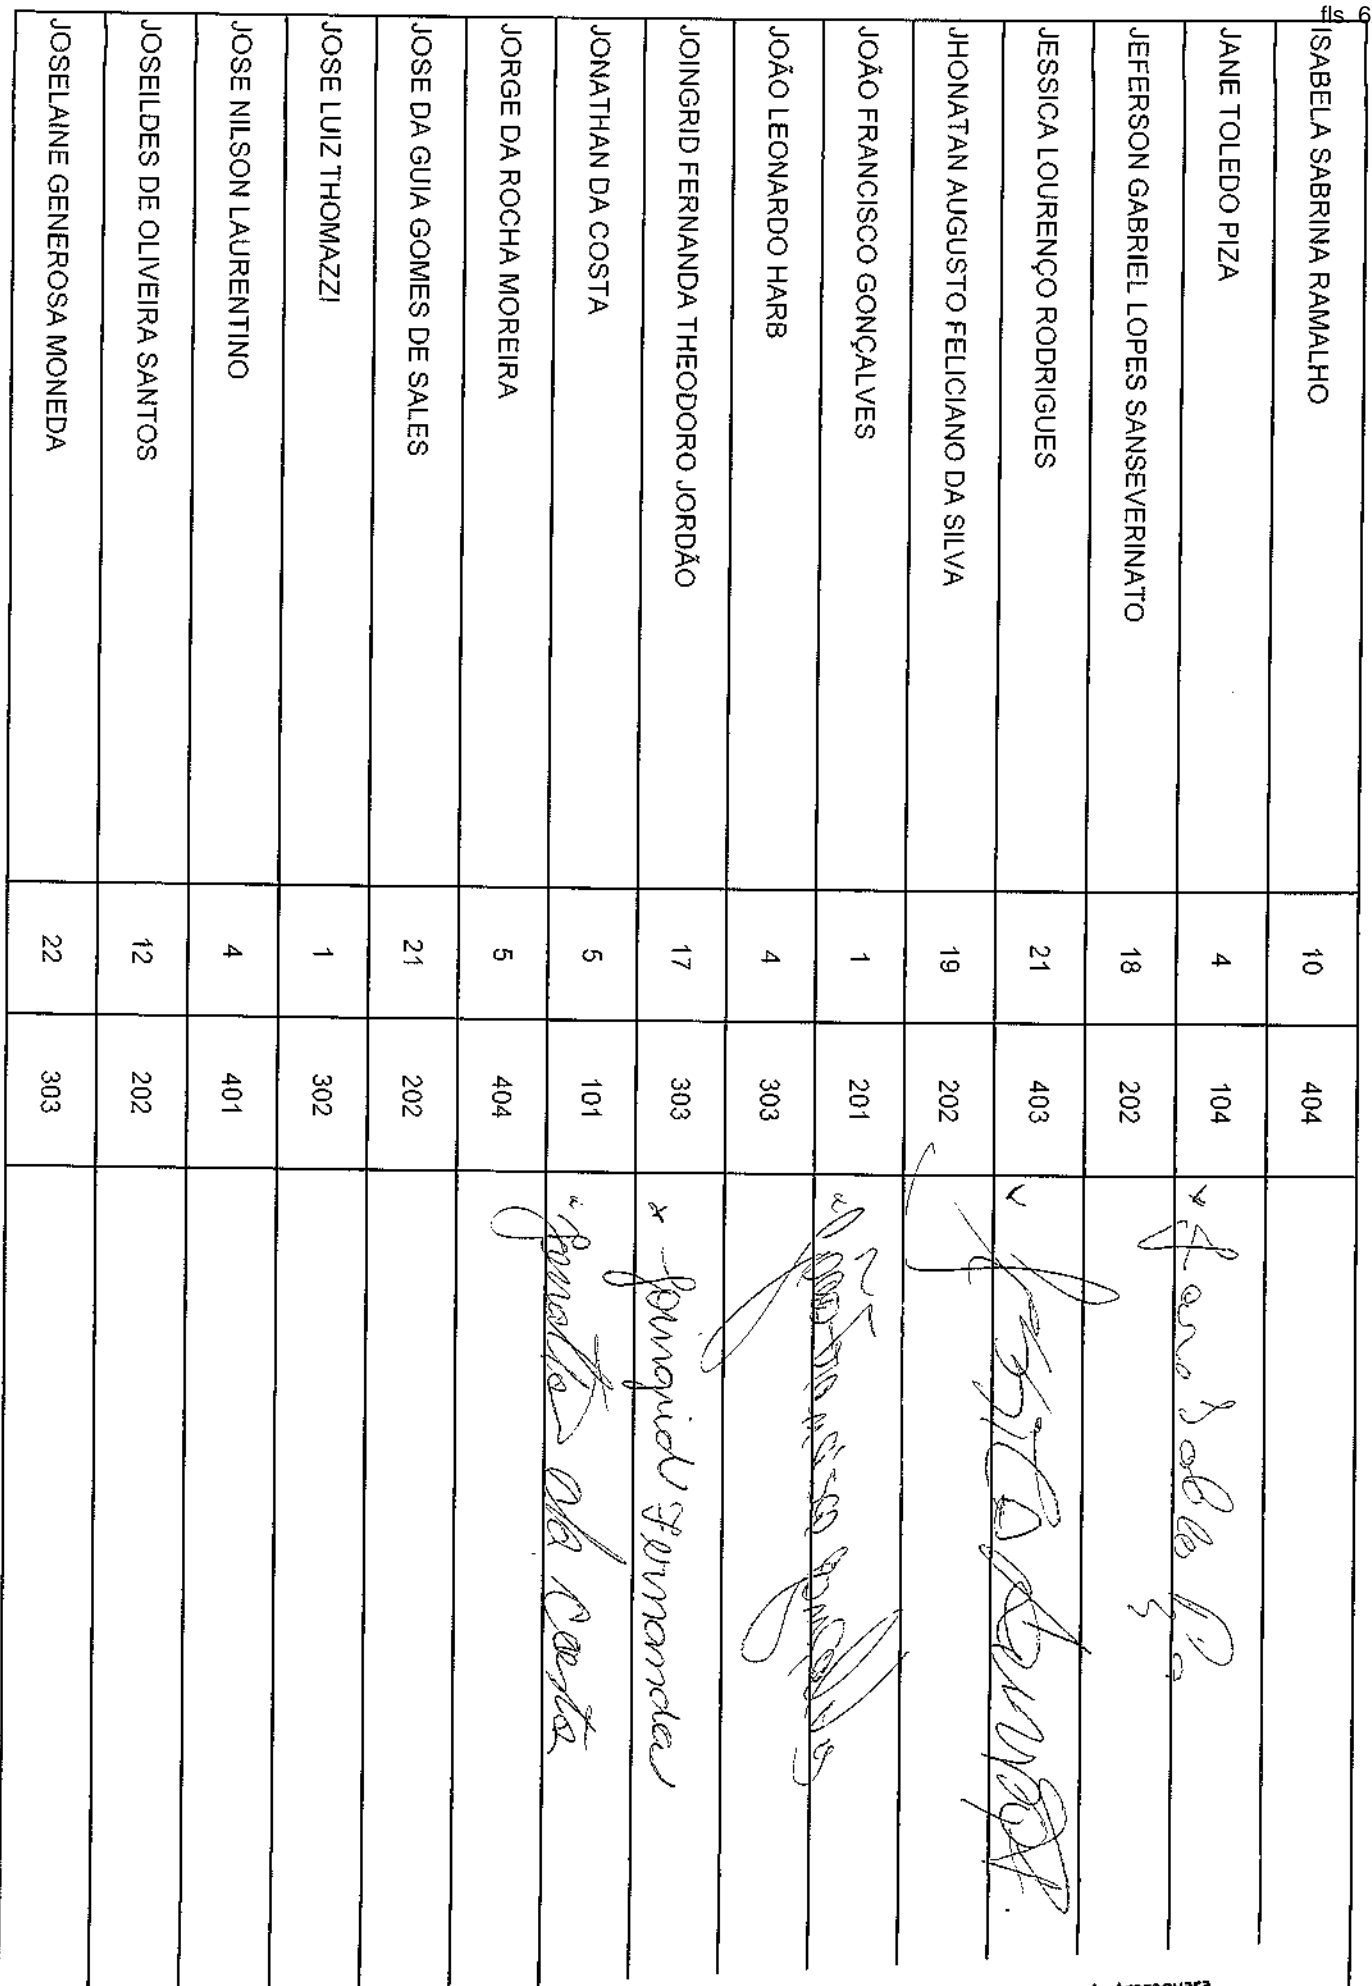 fls. 6
ISABELA SABRINA RAMALHO 10 404
JANE TOLEDO PIZA 4 104
JEFERSON GABRIEL LOPES SANSEVERINATO 18 202
JESSICA LOURENÇO RODRIGUES 21 403
JHONATAN AUGUSTO FELICIANO DA SILVA 19 202
JOÃO FRANCISCO GONÇALVES 1 201
JOÃO LEONARDO HARB 4 303
JOINGRID FERNANDA THEODORO JORDÃO 17 303 x Joingrid Fernanda
JONATHAN DA COSTA 5 101 da Costa
JORGE DA ROCHA MOREIRA 5 404
JOSE DA GUIA GOMES DE SALES 21 202
JOSE LUIZ THOMAZZI 1 302
JOSE NILSON LAURENTINO 4 401
JOSEILDES DE OLIVEIRA SANTOS 12 202
JOSELAINE GENEROSA MONEDA 22 303